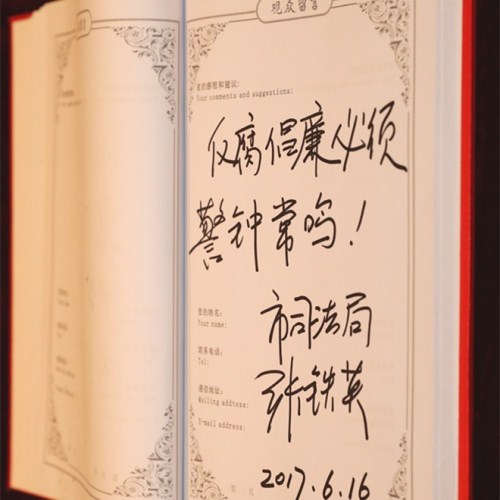 观众留言
您的感想和建议:
Your comments and suggestions:
反腐倡廉必须
警钟常鸣!
您的姓名:
Your name:
市司法局
联系电话:
Tel:
张铁英
通信地址:
Mailing address:
E-mail address:
2017.6.16